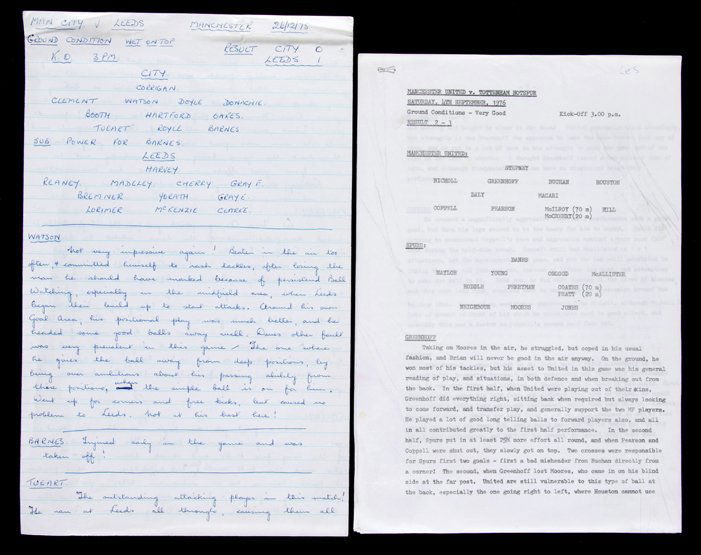 MAN CITY V LEEDS MANCHESTER 26/12/75
GROUND CONDITION WET ON TOP
K.O 3PM RESULT CITY 0
LEEDS 1
CITY
CORRIGAN.
CLEMENT WATSON DOYLE DONACHIE.
BOOTH HARTFORD OAKES.
TUEART ROYLE BARNES
SUB POWER FOR BARNES.
LEEDS
HARVEY
REANEY. MADELEY. CHERRY GRAY F.
BREMNER YORATH GRAY E.
LORIMER McKENZIE CLARKE.
WATSON
Not very impressive again! Beaten in the air too
often, & committed himself to rash tackles, after losing the
man he should have marked because of persistent Ball
Watching, especially in the midfield area, when Leeds
began their build up to start attacks. Around his own
Goal Area, his positional play was much better, and he
headed some good balls away well. Daves other fault
was very prevalent in this game / The one where
he gives the ball away from deep positions, by
being over ambitious about his passing ability from
these positions, when the simple ball is on for him.
Went up for corners and free kicks, but caused no
problems to Leeds. Not at his best here!
BARNES Injured early in the game and was
taken off!
TUEART
The outstanding attacking player in this match!
He ran at Leeds all through, causing them all
LES
MANCHESTER UNITED v. TOTTENHAM HOTSPUR
SATURDAY, 4TH SEPTEMBER, 1976
Ground Conditions - Very Good Kick-Off 3.00 p.m.
RESULT 2 - 3
MANCHESTER UNITED:
STEPNEY
NICHOLL GREENHOFF BUCHAN HOUSTON
DALY MACARI
COPPELL PEARSON McILROY (70 m) HILL
McCREERY(20 m)
SPURS:
DAINES
NAYLOR YOUNG OSGOOD McALLISTER
HODDLE PERRYMAN COATES (70 m)
PRATT (20 m)
NEIGHBOUR MOORES JONES
GREENHOFF
Taking on Moores in the air, he struggled, but coped in his usual
fashion, and Brian will never be good in the air anyway. On the ground, he
won most of his tackles, but his asset to United in this game was his general
reading of play, and situations, in both defence and when breaking out from
the back. In the first half, when United were playing out of their skins,
Greenhoff did everything right, sitting back when required but always looking
to come forward, and transfer play, and generally support the two MF players.
He played a lot of good long telling balls to forward players also, and all
in all contributed greatly to the first half performance. In the second
half, Spurs put in at least 75% more effort all round, and when Pearson and
Coppell were shut out, they slowly got on top. Two crosses were responsible
for Spurs first two goals - first a bad misheader from Buchan directly from
a corner! The second, when Greenhoff lost Moores, who came in on his blind
side at the far post. United are still vulnerable to this type of ball at
the back, especially the one going right to left, where Houston cannot use